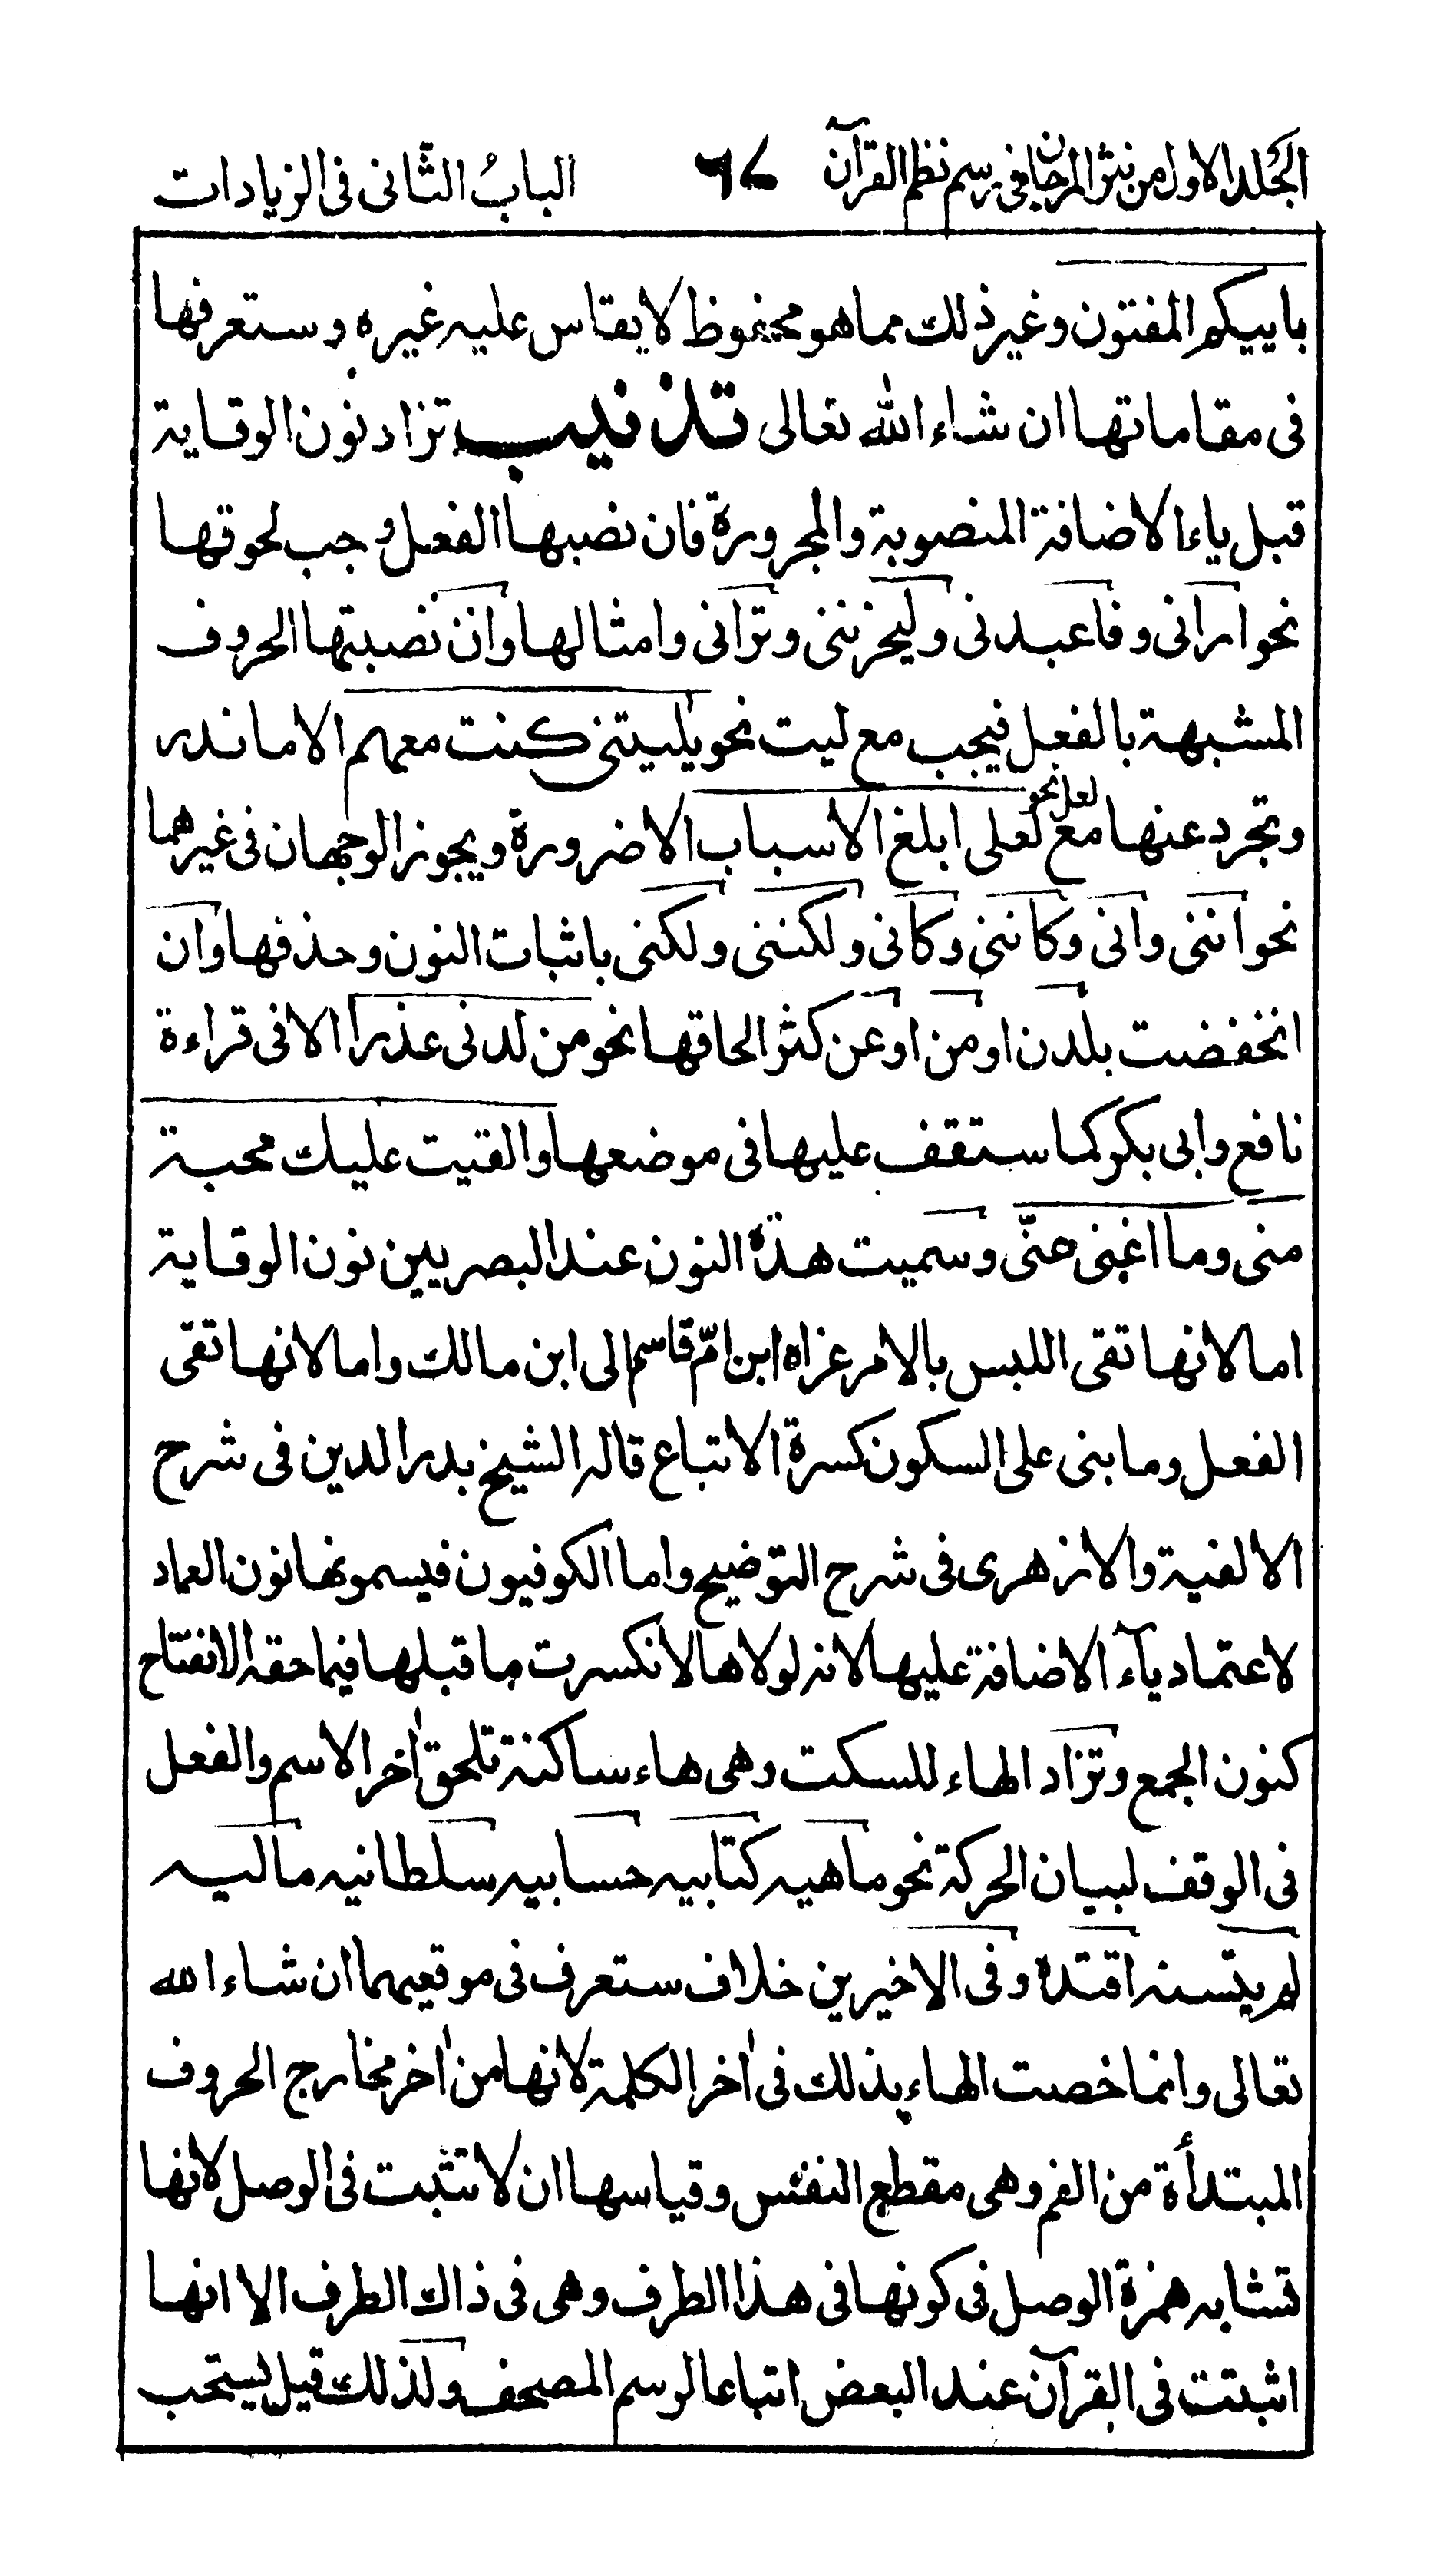 الجلد الاول من نثر المرجان فى رسم نظم القرآن ٦٧ البابُ الثّانى فى الزيادات
باييكم المفتون وغير ذلك مما هو محفوظ لا يقاس عليه غيره وستعرفها
فى مقاماتها ان شاء الله تعالى تذنيب تزاد نون الوقاية
قبل ياء الاضافة المنصوبة والمجرورة فان نصبها الفعل وجب لحوقها
نحو ارانى وفاعبدنى وليحزننى وترانى وامثالها وان نصبتها الحروف
المشبهة بالفعل فيجب مع ليت نحو يٰليتنى كنت معهم الا ما ندر
وتجرد عنها مع لعل نحو لعلى ابلغ الاسباب الا ضرورة ويجوز الوجهان فى غيرهما
نحو اننى وانى وكاننى وكانى ولكننى ولكنى باثبات النون وحذفها وان
انخفضت بلدن او من او عن كثر الحاقها نحو من لدنى عذرا الا فى قراءة
نافع وابى بكر كما ستقف عليها فى موضعها والقيت عليك محبة
منى وما اغنى عنّى وسميت هذه النون عند البصريين نون الوقاية
اما لانها تقى اللبس بالامر عزاه ابن امّ قاسم الى ابن مالك واما لانها تقى
الفعل وما بنى على السكون كسرة الاتباع قاله الشيخ بدر الدين فى شرح
الالفية والازهرى فى شرح التوضيح واما الكوفيون فيسمونها نون العماد
لاعتماد يآء الاضافة عليها لانه لولاها لانكسرت ما قبلها فيما حقه الانفتاح
كنون الجمع وتزاد الهاء للسكت وهى هاء ساكنة تلحق اٰخر الاسم والفعل
فى الوقف لبيان الحركة نحو ماهيه كتابيه حسابيه سلطانيه ماليه
لم يتسنه اقتده وفى الاخيرين خلاف ستعرف فى موقعيهما ان شاء الله
تعالى وانما خصت الهاء بذلك فى اٰخر الكلمة لانها من اٰخر مخارج الحروف
المبتدأة من الفم وهى مقطع النفس وقياسها ان لا تثبت فى الوصل لانها
تشابه همزة الوصل فى كونها فى هذا الطرف وهى فى ذاك الطرف الا انها
اثبتت فى القرآن عند البعض اتباعا لرسم المصحف ولذلك قيل يستحب